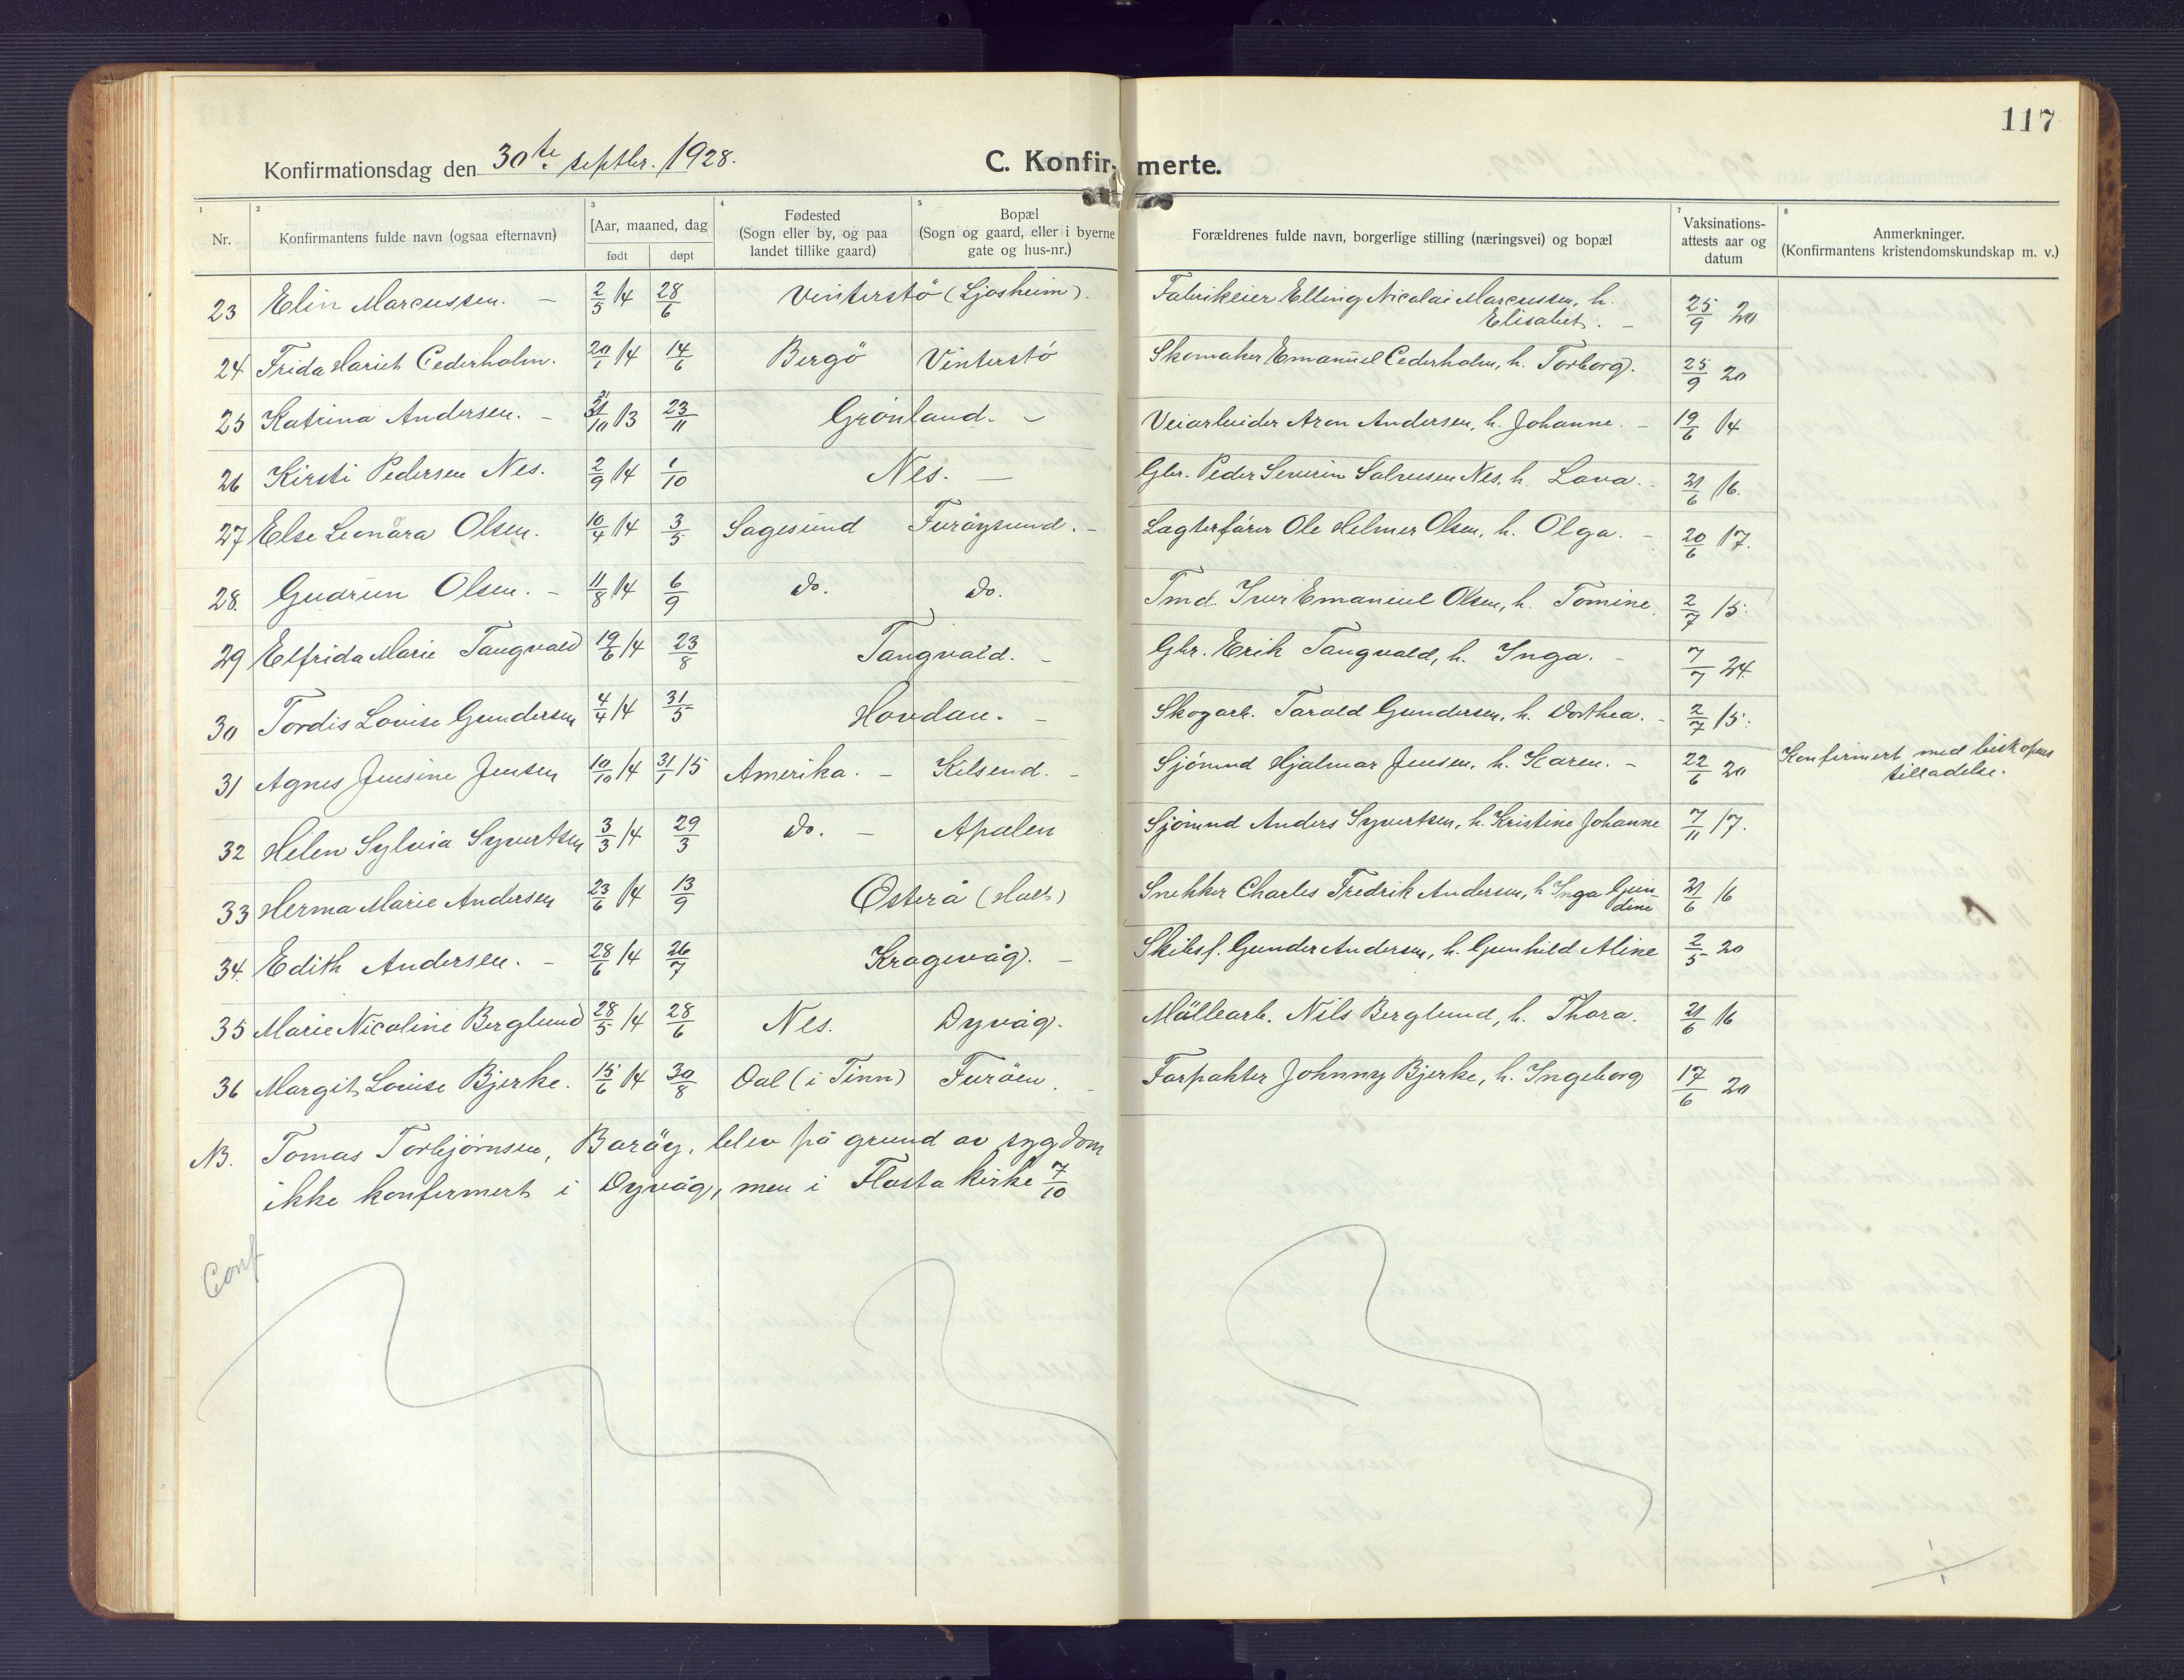 117
Konfirmationsdag den 30te septbr. 1928.
C. Konfirmerte.
1 2 3 4 5 7 8
Nr.
Konfirmantens fulde navn (ogsaa efternavn)
[Aar, maaned, dag
født døpt
Fødested
(Sogn eller by, og paa
landet tillike gaard)
Bopæl
(Sogn og gaard, eller i byerne
gate og hus-nr.)
Forældrenes fulde navn, borgerlige stilling (næringsvei) og bopæl
Vaksinations-
attests aar og
datum
Anmerkninger.
(Konfirmantens kristendomskundskap m. v.)
23 Elin Marcussen. – 2/5 14 28/6 Vinterstö (Ljosheim). Fabrikeier Elling Nicolai Marcussen, h.
Elisabet. – 25/9 20
24 Frida Hariet Cederholm. 20/1 14 14/6 Bergö Vinterstö Skomaker Emanuel Cederholm, h. Torborg. 25/9 20
25 Katrina Andersen. – 31/10 13 23/11 Grönland. – Veiarbeider Aron Andersen, h. Johanne. – 19/6 14
26 Kirsti Pedersen Nes. 2/9 14 1/10 Nes. – Gbr. Peder Severin Salvesen Nes, h. Lava. – 21/6 16.
27 Else Leonara Olsen. 10/4 14 3/5 Sagesund Furöysund. – Lagterförer Ole Helmer Olsen, h. Olga. – 20/6 17.
28. Gudrun Olsen. – 11/8 14 6/9 do. do. Tmd. Iver Emanuel Olsen, h. Tomine. 2/7 15.
29 Elfrida Marie Tangvald 19/6 14 23/8 Tangvald. – Gbr. Erik Tangvald, h. Inga. – 7/7 24.
30 Tordis Lovise Gundersen 4/4 14 31/5 Hovdan. – Skogarb. Tarald Gundersen, h. Dorthea. – 2/7 15.
31 Agnes Jensine Jensen 10/10 14 31/1 15 Amerika. – Kilsend. – Sjömnd Hjalmar Jensen, h. Karen. – 22/6 20 Konfirmert med biskopens
tilladelse.
32 Helen Sylvia Syvertsen 3/3 14 29/3 do. – Apalen Sjömnd Anders Syvertsen, h. Kristine Johanne 7/11 17.
33 Herma Marie Andersen 23/6 14 13/9 Österå (Holt) Snekker Charles Fredrik Andersen, h. Inga Gun-
dine 21/6 16
34. Edith Andersen. – 28/6 14 26/7 Kragevåg. – Skibsf. Gunder Andersen, h. Gunhild Aline 2/5 20
35 Marie Nicoline Berglund 28/5 14 28/6 Nes. Dyvåg. Möllearb. Nils Berglund, h. Thora. 21/6 16
36 Margit Lovise Bjerke. 15/6 14 30/8 Dal (i Tinn) Furöen. – Forpakter Johnny Bjerke, h. Ingeborg 17/6 20
NB. Tomas Torbjørnsen, Boröy, blev på grund av sygdom
ikke konfirmert i Dyvåg, men i Flosta kirke 7/10
Conf